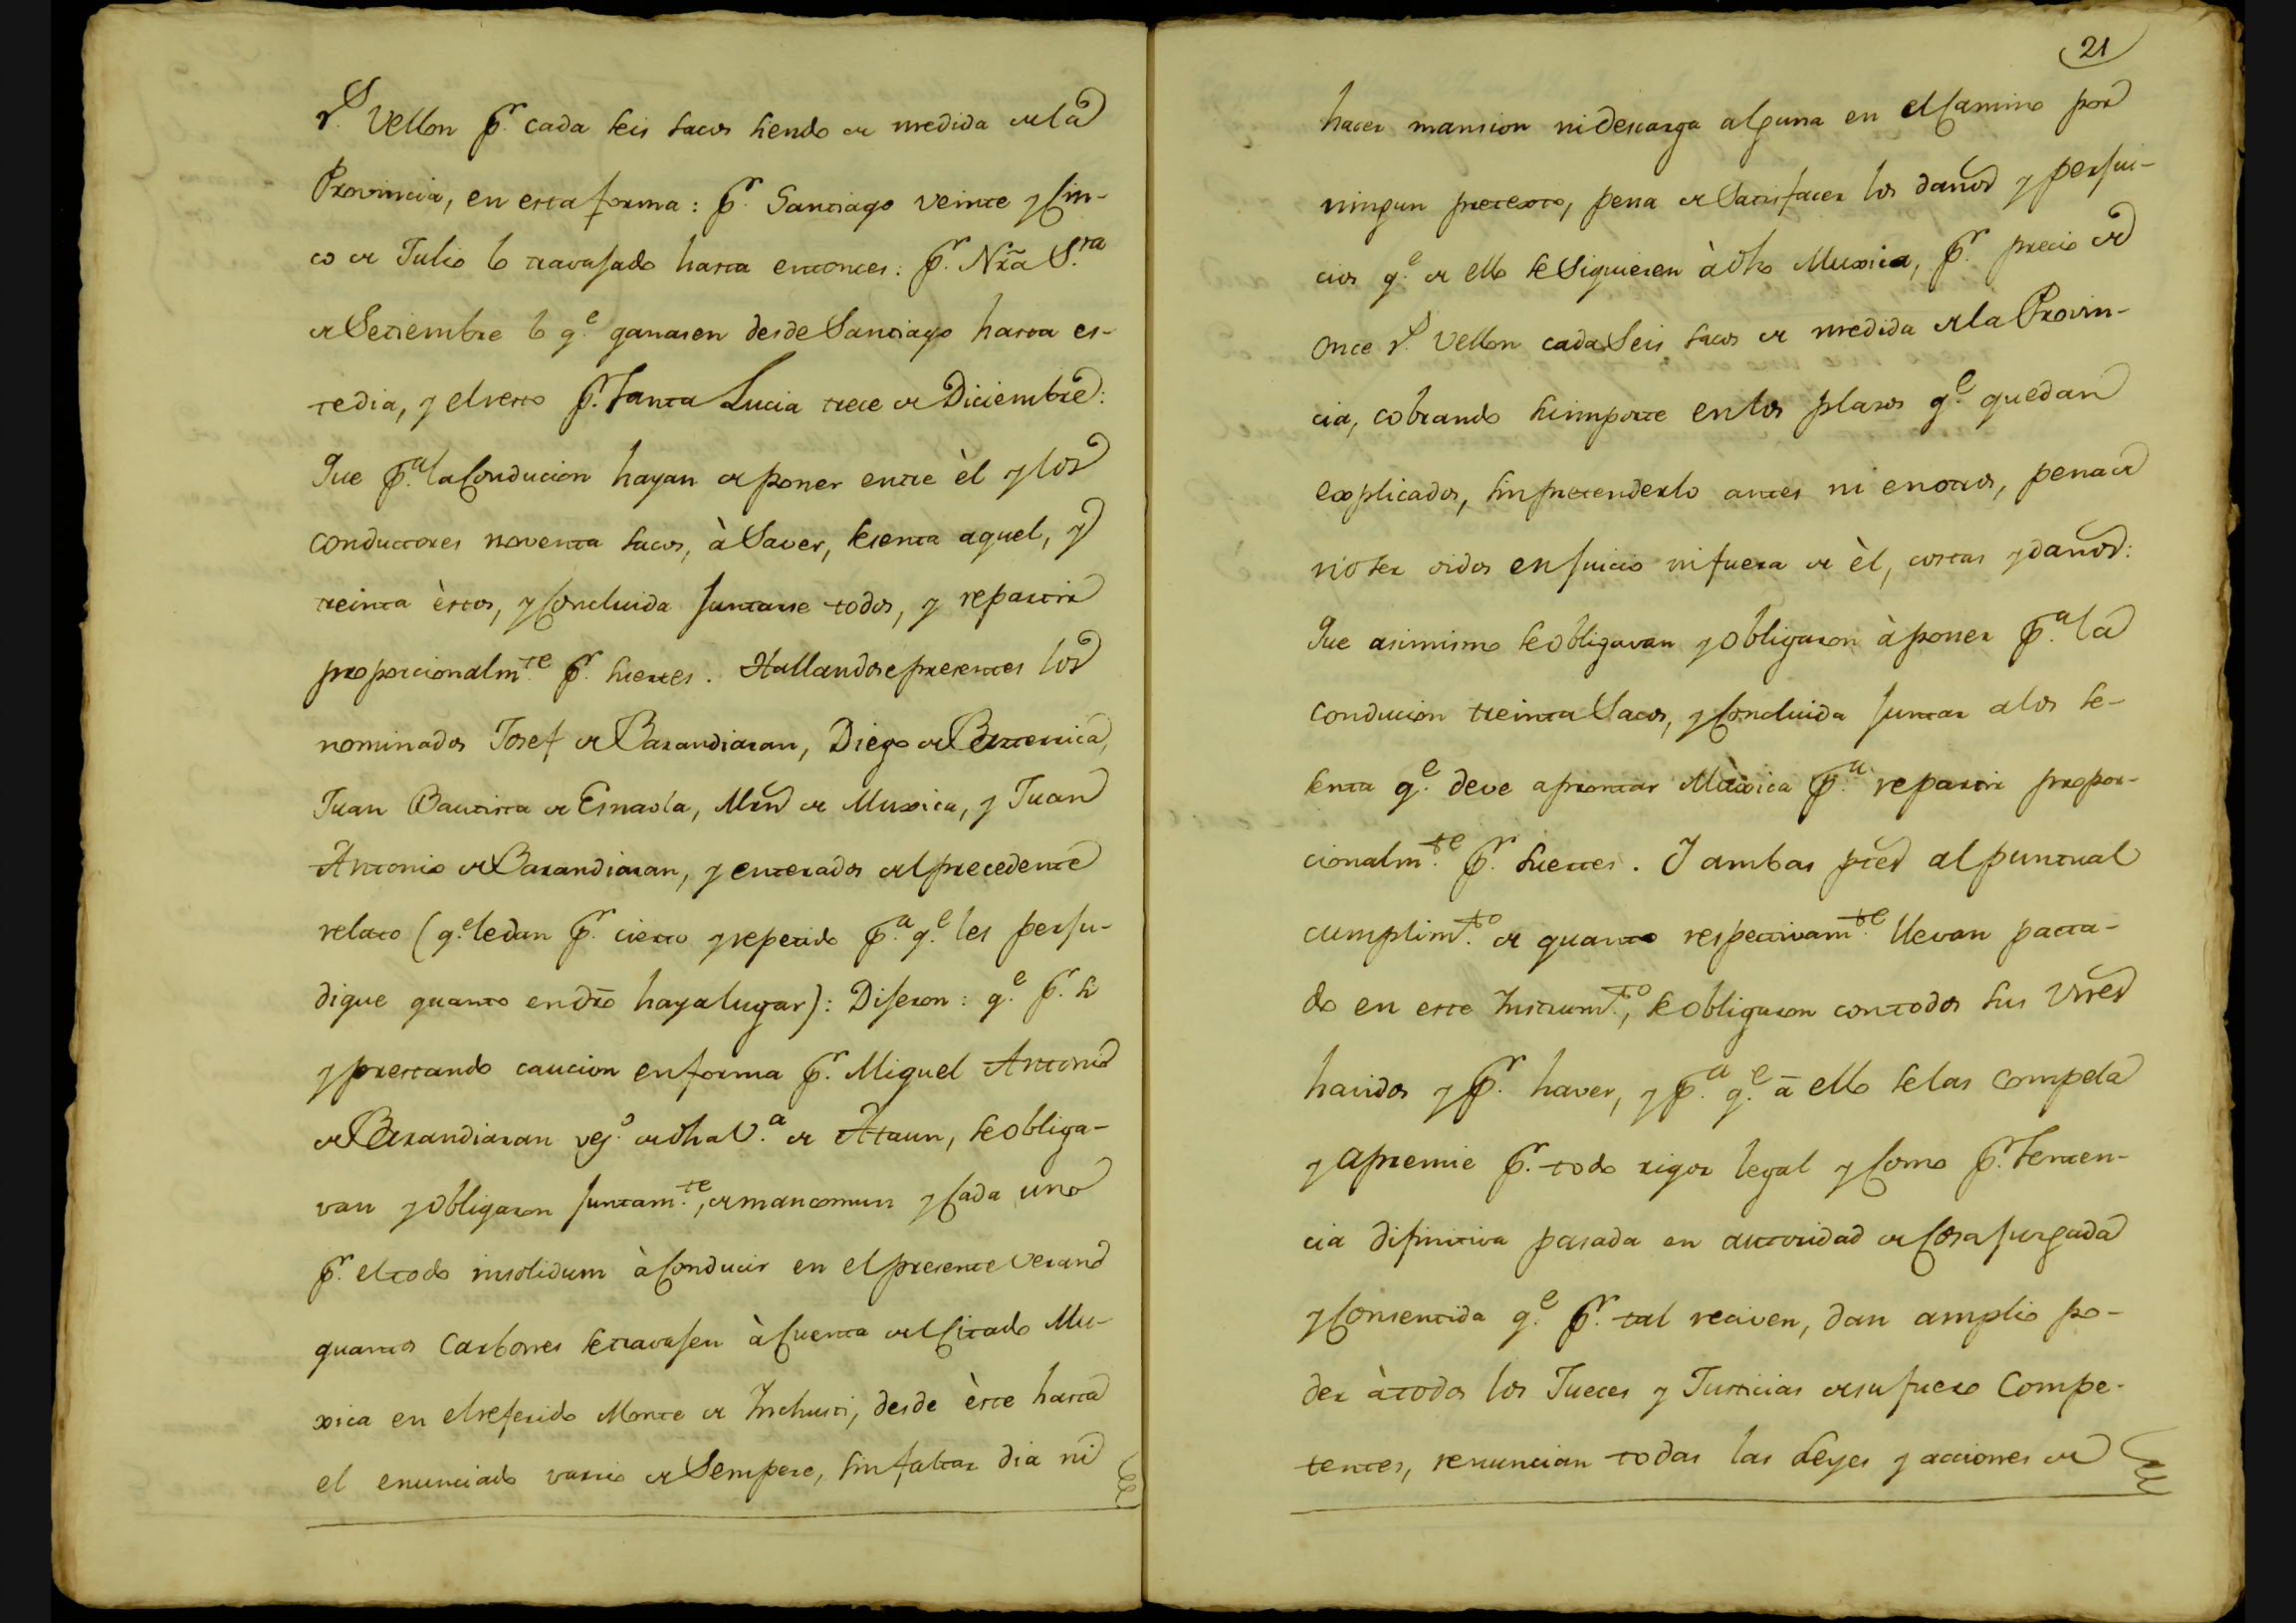 r.s Vellon p.r cada seis sacos siendo de medida dela
Provincia, en esta forma: p.r Santiago veinte y cin-
co de Julio lo travajado hasta entonces: p.r Nrã S.ra
de Setiembre lo q.e ganasen desde Santiago hasta es-
te dia, y el resto p.r Santa Lucia trece de Diciembre:
Que p.a la Conducion hayan de poner entre èl y los
conductores noventa sacos, à Saver, sesenta aquel, y
treinta èstos, y Concluida juntarse todos, y repartir
proporcionalm.te p.r suertes. Hallandose presentes los
nominados Josef de Barandiaran, Diego de
Juan Bautista de Esnaola, Mrn de Muxica, y Juan
Antonio de Barandiaran, y enterados del precedente
relato (q.e le dan p.r cierto y repetido p.a q.e les perju-
dique quanto en dro haya lugar): Dijeron: q.e p.r si
y prestando caucion en forma p.r Miguel Antonio
de Barandiaran vez.o de dha V.a de Ataun, se obliga-
van y obligaron juntam.te, de mancomun y cada uno
p.r el todo insolidum à Conducir en el presente Verano
quantos Carbones se travajen à Cuenta del Citado Mu-
xica en el referido Monte de Inchusti, desde èste hasta
el enunciado varrio de Sempere, sin faltar dia ni
21
hacer mansion ni descarga alguna en el Camino por
ningun pretexto, pena de Satisfacer los daños y perjui-
cios q.e de ello se Siguiesen à dho Muxica, p.r precio de
once r.s Vellon cada Seis sacos de medida de la Provin-
cia, cobrando su importe en los plazos q.e quedan
explicados, sin pretenderlo antes ni en otros, pena de
no ser oidos en juicio ni fuera de èl, costas y daños:
Que asimismo se obligavan y obligaron à poner p.a la
conducion treinta Sacos, y Concluida juntar a los se-
senta q.e deve aprontar Muxica p.a repartir propor-
cionalm.te p.r suertes. Y ambas ptes al puntual
cumplim.to de quanto respectivam.te llevan pacta-
do en este Instrum.to, se obligaron con todos sus Vnes
havidos y p.r haver, y p.a q.e ã ello se las compela
y apremie p.r todo rigor legal y Como p.r Senten-
cia difinitiva pasada en autoridad de Cosa juzgada
y Consentida q.e p.r tal reciven, dan amplio po-
der à todos los Jueces y Justicias de su fuero Compe-
tentes, renuncian todas las Leyes y acciones de